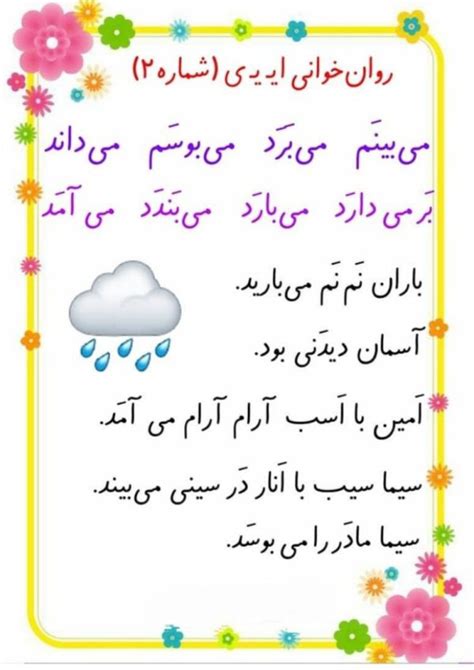 روان‌خوانی ایـ یـ ی (شماره ۲)
می‌بینَم می‌بَرَد می‌بوسَم می‌داند
بَر می دارَد می‌بارَد می‌بَندَد می آمَد
باران نَم نَم می‌بارید.
آسمان دیدَنی بود.
اَمین با اَسب آرام آرام می آمَد.
سیما سیب با اَنار دَر سینی می‌بیند.
سیما مادَر را می بوسَد.